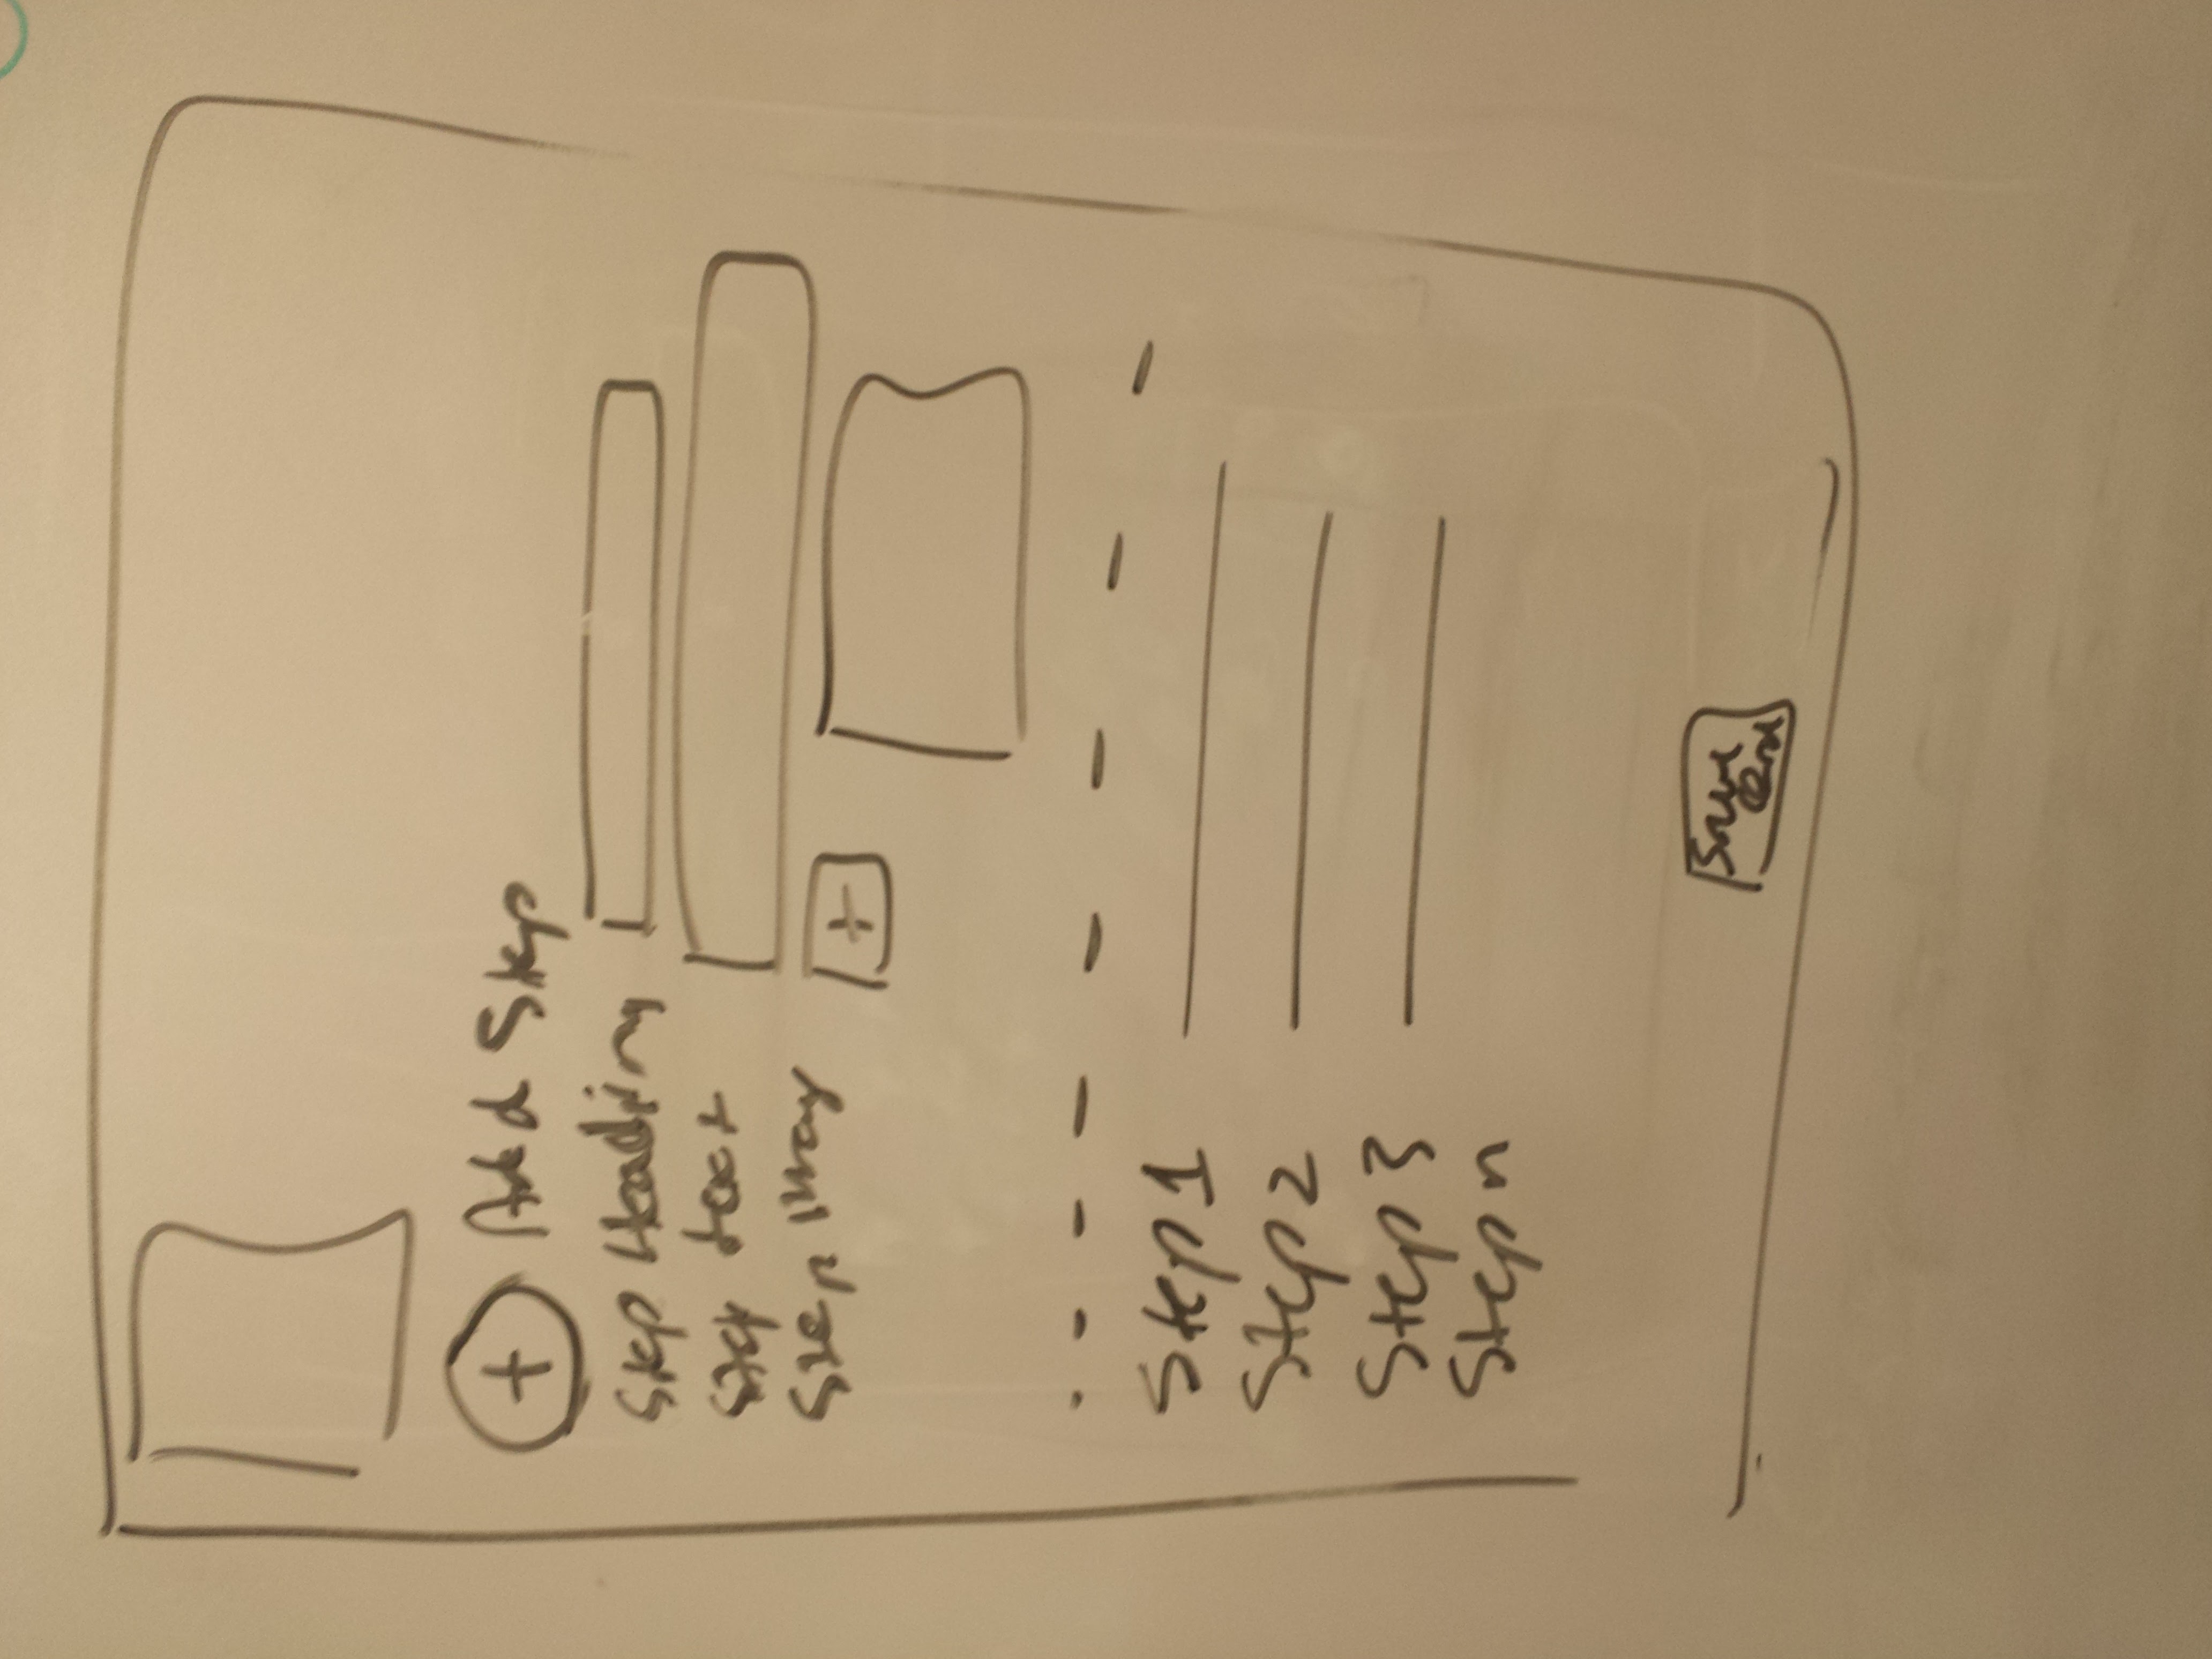 + Add Step
Step Heading
Step text
Step
+
Step 1
Step 2
Step 3
Step n
Save